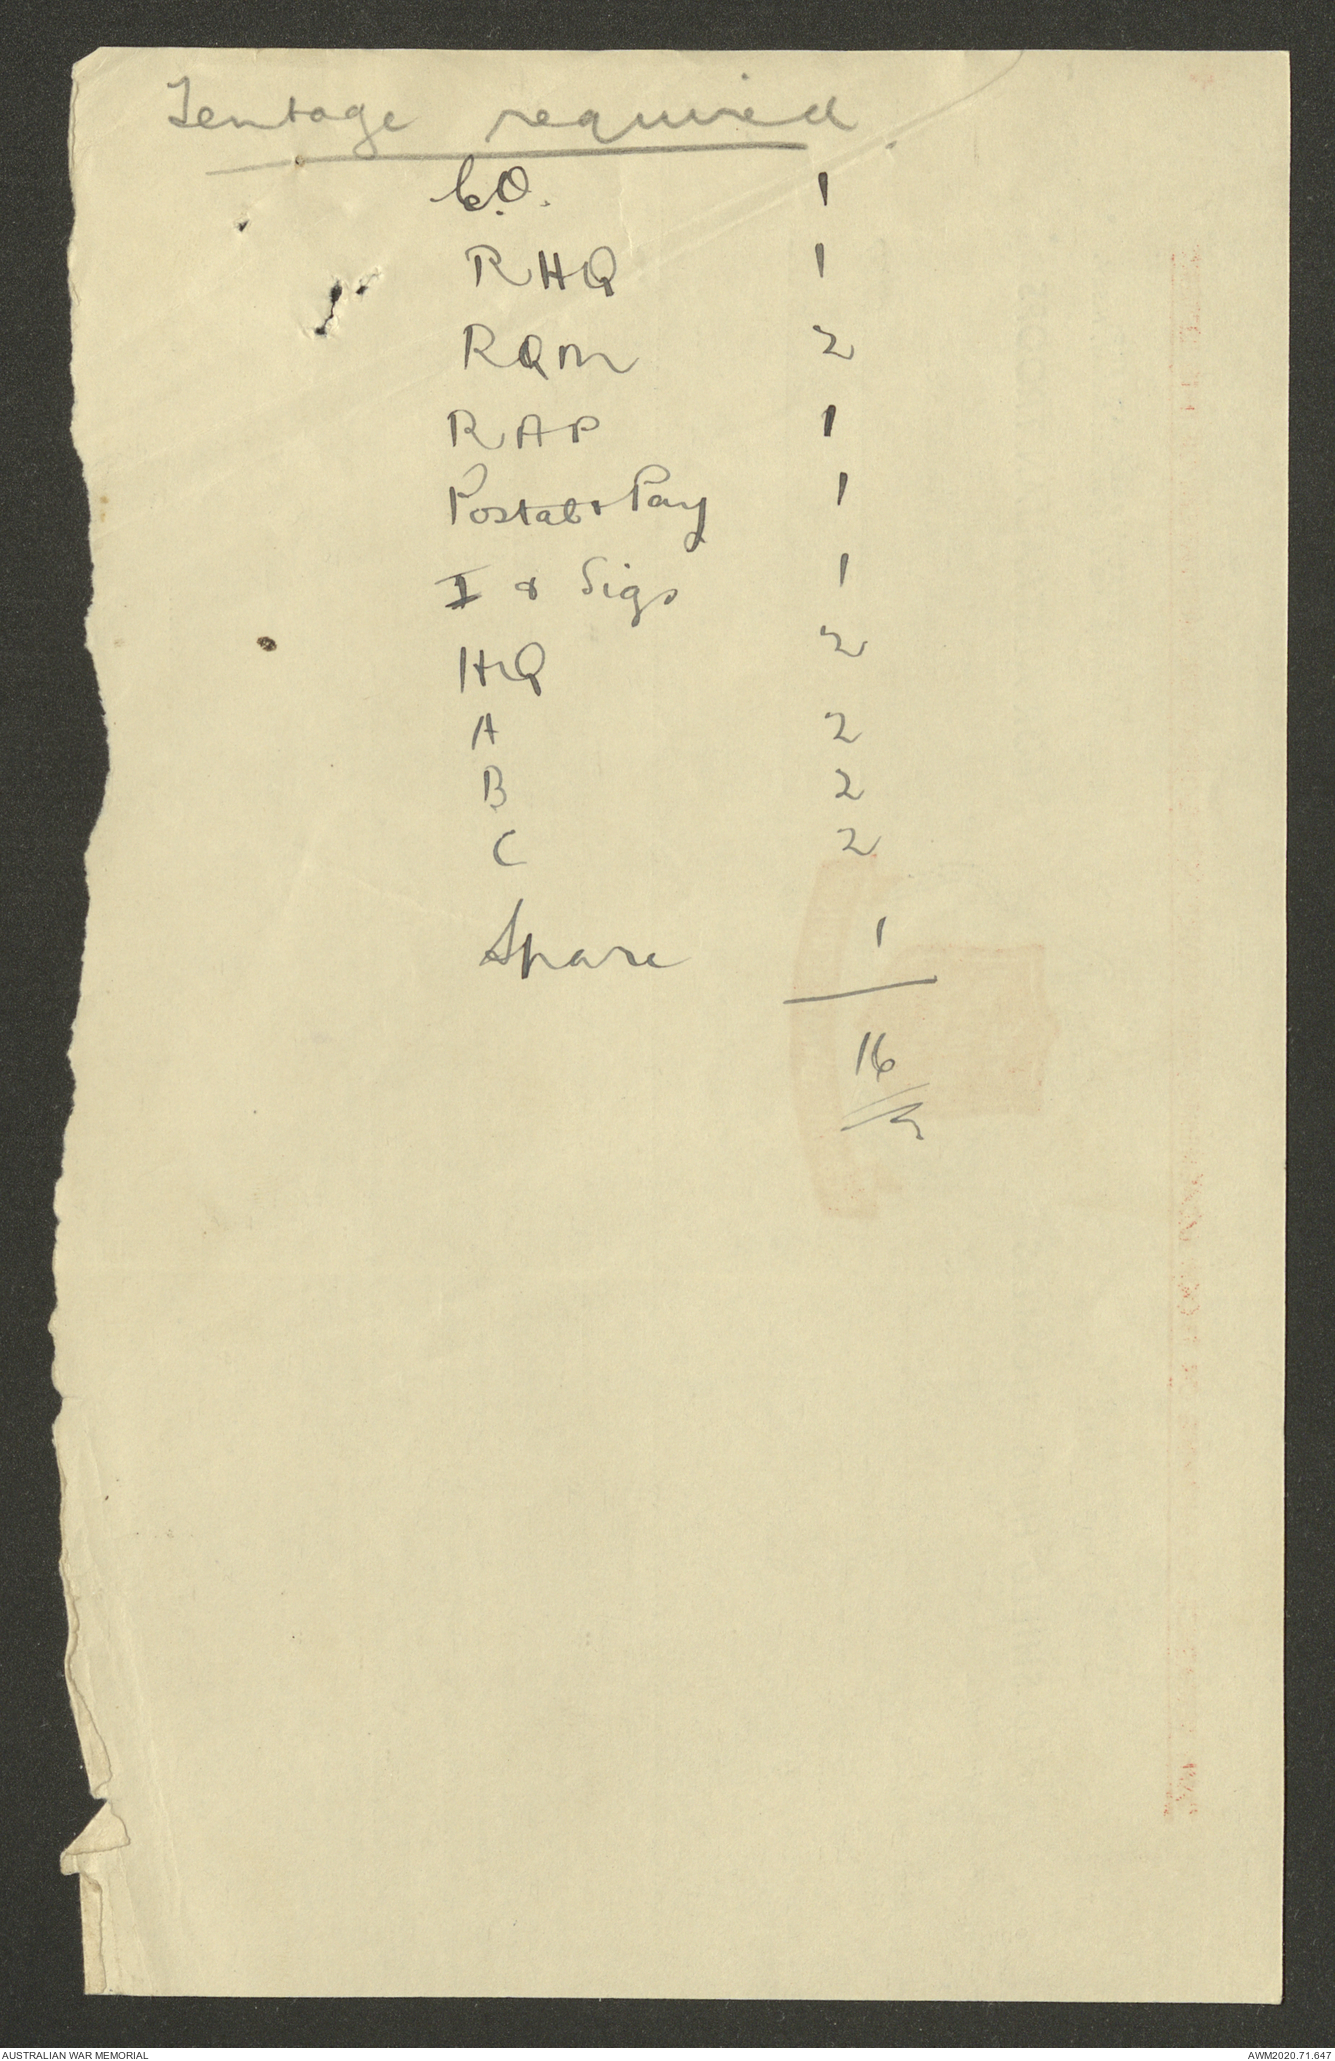 Tentage required.
C.O. 1
RHQ 1
RQM 2
RAP 1
Postal & Pay 1
I & Sigs 1
HQ 2
A 2
B 2
C 2
Spare 1
16
AUSTRALIAN WAR MEMORIAL
AWM2020.71.647